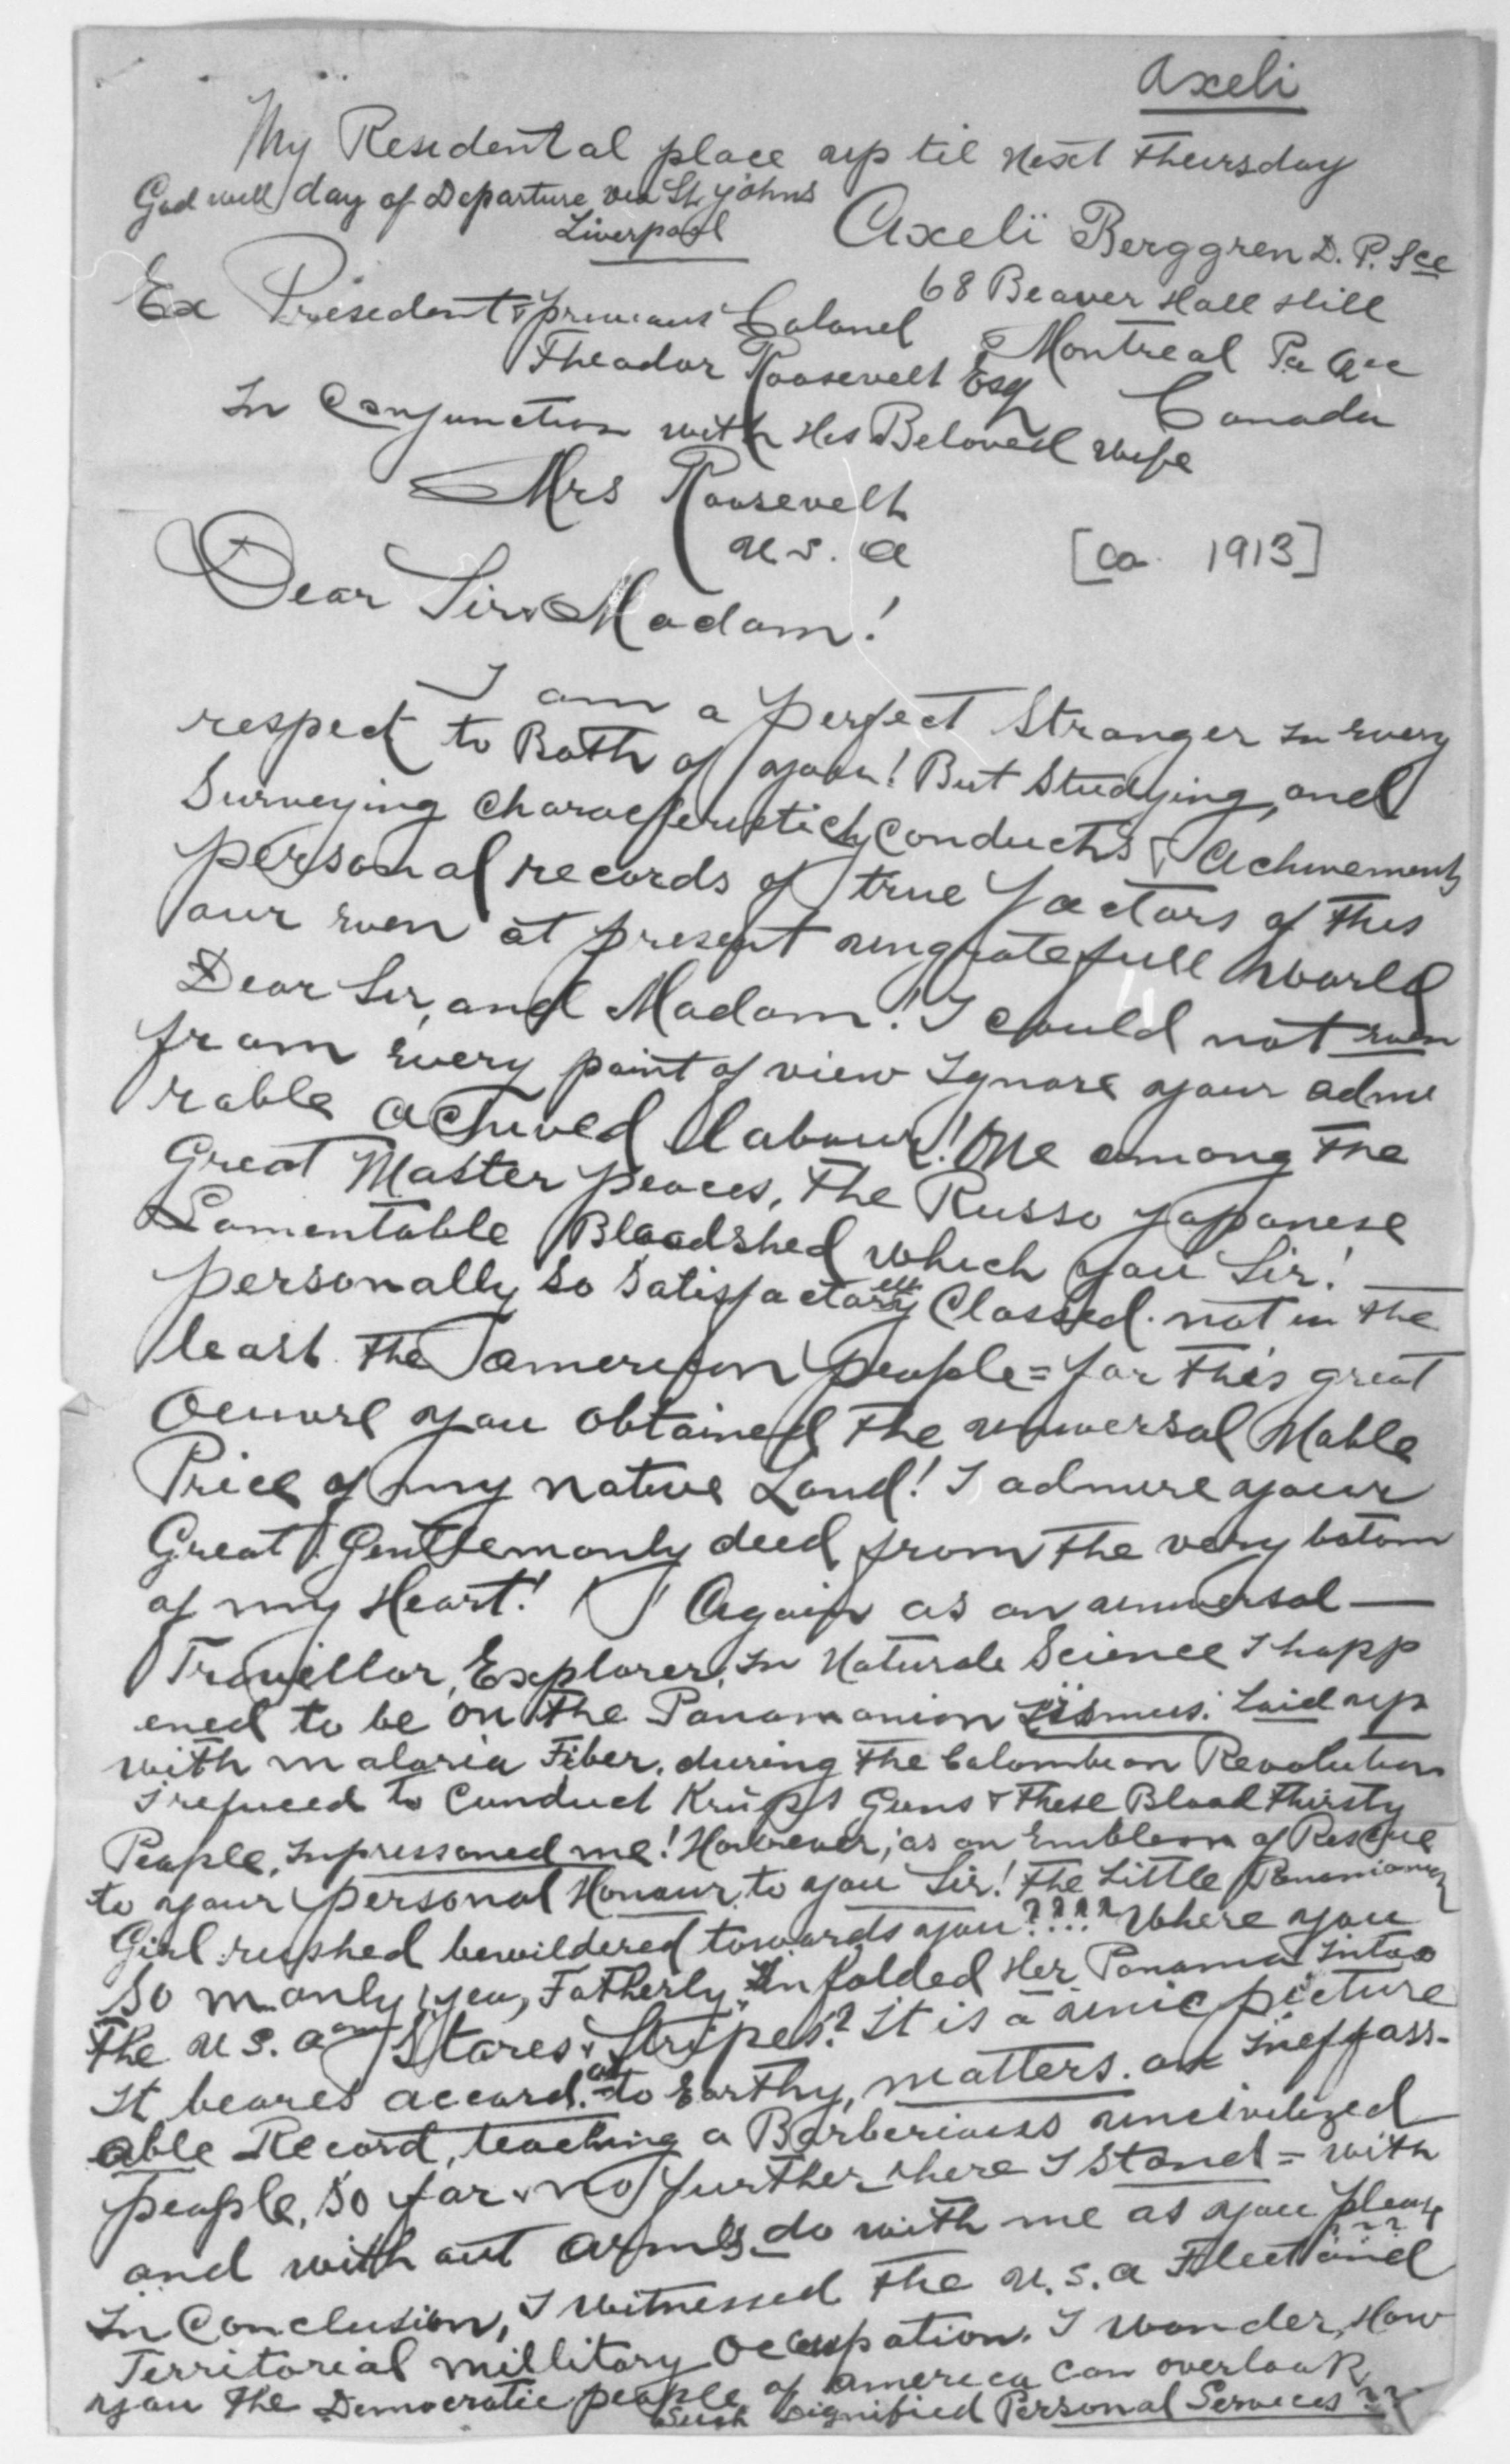 Axeli
My Residental place up til next Thursday
God will day of Departure via St johns
Liverpool
Axeli Berggren D. P. Sce
68 Beaver Hall Hill
Montreal Pr Que
Canada
Ex President & previous Colonel
Theodor Roosevelt Esq
In Conjunction with His Beloved wife
Mrs Roosevelt
U. S. A
[ca. 1913]
Dear Sir & Madam!
I am a perfect Stranger in Every
respect to Both of you! But Studying, and
Surveying conducts & Achivements
personal records of true factors of this
our even at present ungratefull world
Dear Sir, and Madam! I could not even
from Every point of view Ignore your admi
rable achived labour! One among the
Great Master peaces, The Russo yapanese
Lamentable Bloodshed which you Sir! —
personally so Satisfactory Classed. not in the
least the american people = for this great
you obtained the universal Noble
Price of my native Land! I admire your
Great Gentlemanly deed from the very botom
of my Heart! Again as an universal —
Travellor, Explorer, in Naturale Science I happ
ened to be on the Panamanian Iismus. Laid up
with malaria Fiber, during the Colombian Revolution
I refuced to Conduct Krüps Guns & These Blood thirsty
People, Inpressoned me! However, as an Emblem of Rescue
to your personal Honour, to you Sir! The Little
Girl rushed bewildered towards you????? Where you
So manly, yea, Fatherly, Infolded Her Panama into
the U. S. a Stares & Stripes? It is a unic picture
It beares accord. to Earthy, matters. an Ineffass-
able Record, teaching a Barberiouss uncivilized
people, so far & no further here I stand = with
and without arms do with me as you please
In Conclusion, I witnessed the U. S. a Fleet and
Territorial millitary occupation. I wonder, How
you the Democratic people of America can overlook
Such Dignified Personal Services??